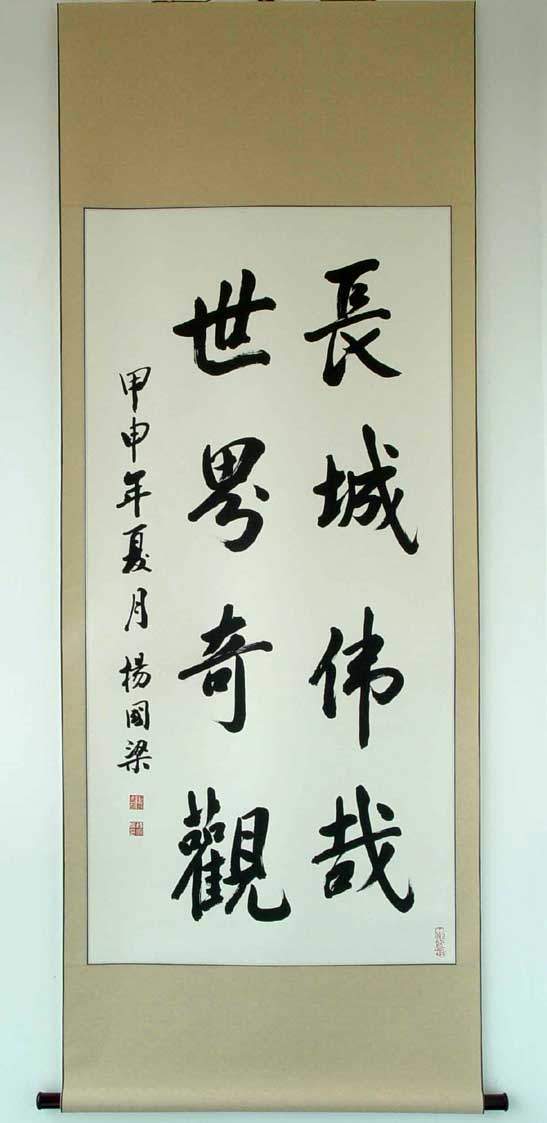 長城伟哉
世界奇觀
甲申年夏月 楊國梁